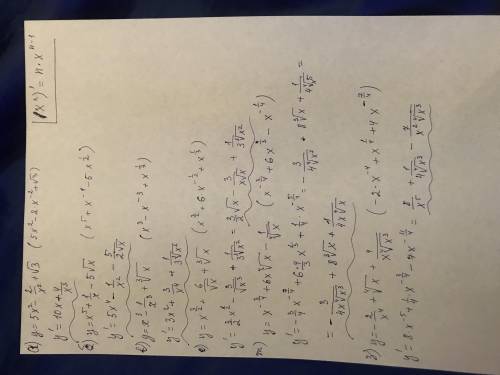 (xⁿ)' = n · x^(n-1)
а) y = 5x² - 2/x² + √3 (5x² - 2x^(-2) + √3)
y' = 10x + 4/x³
б) y = x⁵ + 1/x - 5√x (x⁵ + x^(-1) - 5x^(1/2))
y' = 5x⁴ - 1/x² - 5/(2√x)
в) y = x³ - 1/x³ + ∛x (x³ - x^(-3) + x^(1/3))
y' = 3x² + 3/x⁴ + 1/(3∛x²)
е) y = x^(3/2) + 6/√x + ∛x (x^(3/2) + 6x^(-1/2) + x^(1/3))
y' = 3/2 x^(1/2) - 3/√x³ + 1/(3∛x²) = 3/2 √x - 3/(x√x) + 1/(3∛x²)
ж) y = x^(-3/4) + 6x∛x - 1/∜x (x^(-3/4) + 6x^(4/3) - x^(-1/4))
y' = -3/4 x^(-7/4) + 6·4/3 x^(1/3) + 1/4 · x^(-5/4) = -3/(4∜x⁷) + 8∛x + 1/(4∜x⁵) =
= -3/(4x∜x³) + 8∛x + 1/(4x∜x)
з) y = -2/x⁴ + ∜x + 4/(x∜x³) (-2·x^(-4) + x^(1/4) + 4x^(-7/4))
y' = 8x^(-5) + 1/4 x^(-3/4) - 7x^(-11/4) = 8/x⁵ + 1/(4∜x³) - 7/(x²∜x³)